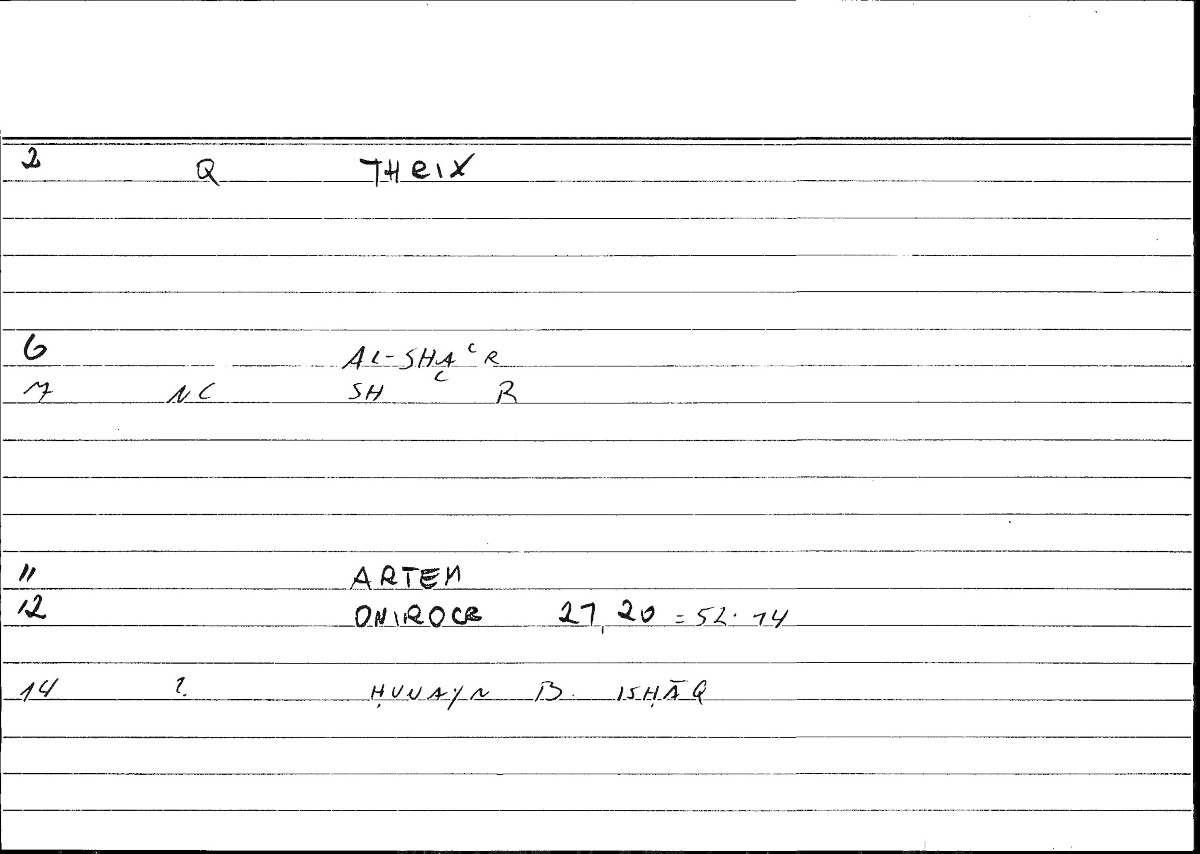 2 Q THEIX
6 AL-SHAʿR
7 NC SHʿ R
11 ARTEM
12 ONIROCR 27,20 = 52.14
14 ?. ḤUNAYN B. ISḤĀQ